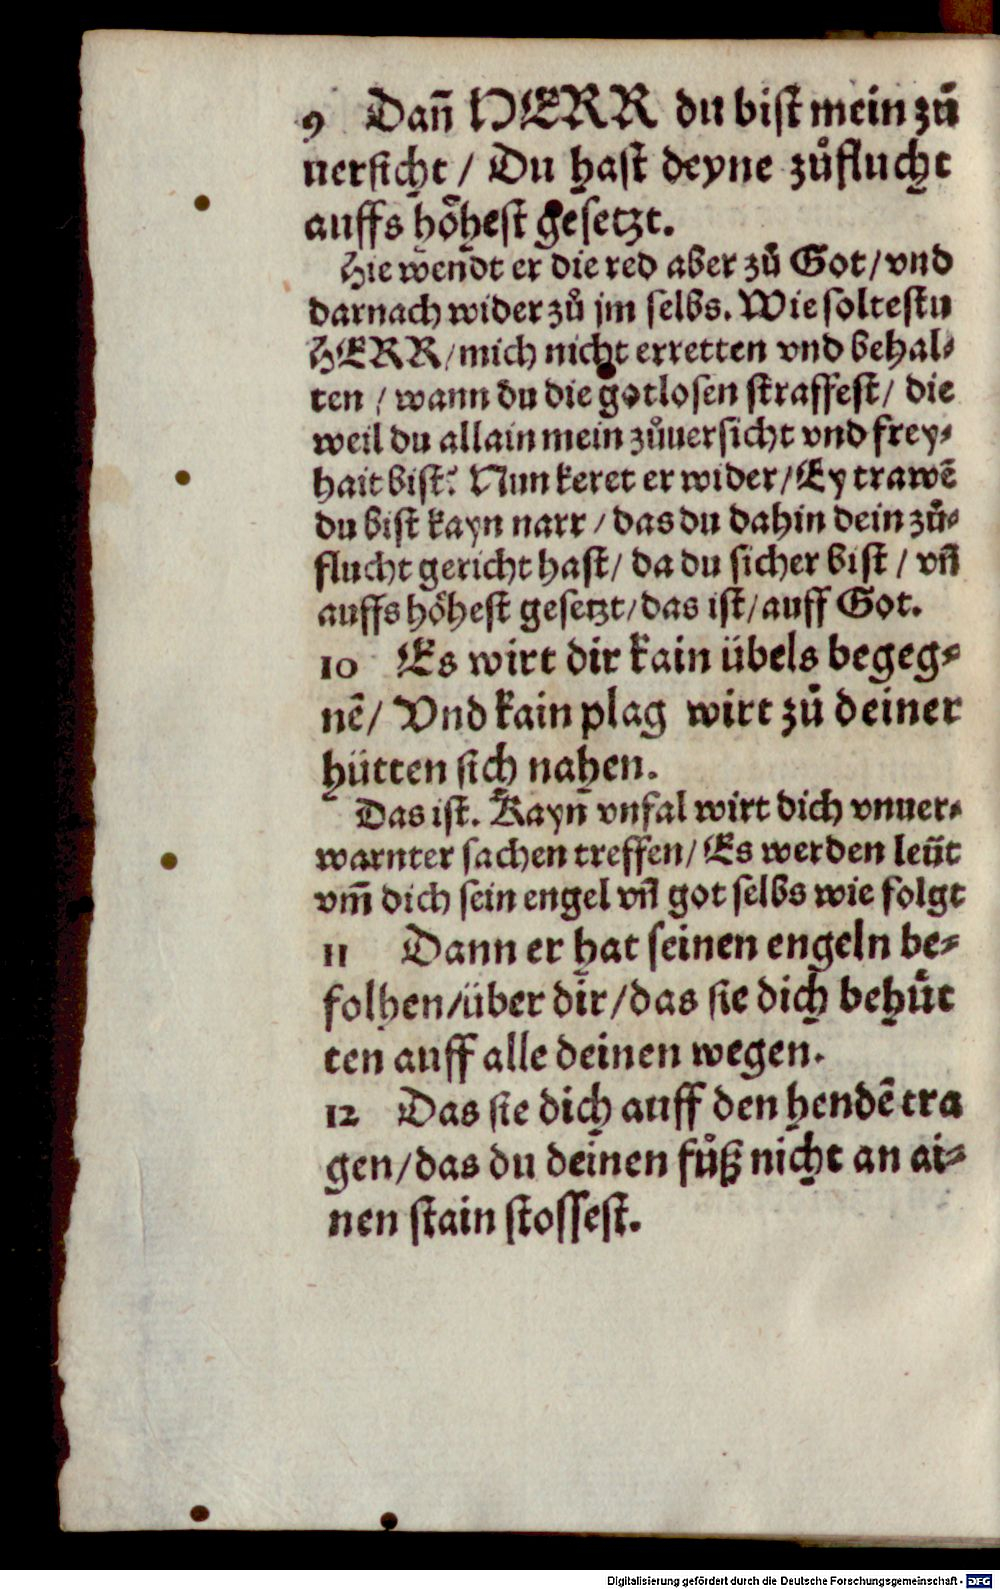 9 Dañ HERR du bist mein zů
uersicht / Du hast deyne zůflucht
auffs höhest gesetzt.
Hie wendt er die red aber zů Got / vnd
darnach wider zů jm selbs. Wie soltestu
HERR / mich nicht erretten vnd behal⸗
ten / wann du die gotlosen straffest / die
weil du allain mein zůuersicht vnd frey⸗
hait bist? Nun keret er wider / Ey trawē
du bist kayn narr / das du dahin dein zů⸗
flucht gericht hast / da du sicher bist / vñ
auffs höhest gesetzt / das ist / auff Got.
10 Es wirt dir kain übels begeg⸗
nē / Vnd kain plag wirt zů deiner
hütten sich nahen.
Das ist. Kayn vnfal wirt dich vnuer⸗
warnter sachen treffen / Es werden leüt
vm̄ dich sein engel vñ got selbs wie folgt
11 Dann er hat seinen engeln be⸗
folhen / über dir / das sie dich behůt
ten auff alle deinen wegen.
12 Das sie dich auff den hendē tra
gen / das du deinen fůß nicht an ai⸗
nen stain stossest.
Digitalisierung gefördert durch die Deutsche Forschungsgemeinschaft - DFG